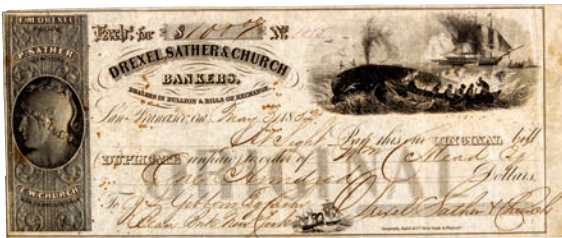 F. M. DREXEL
P. SATHER
E. W. CHURCH
Exch: for $100 Nº
DREXEL, SATHER & CHURCH
BANKERS,
DEALERS IN BULLION & BILLS OF EXCHANGE.
San Francisco, Cal May 31 1852
At Sight Pay this our ORIGINAL bill
DUPLICATE unpaid to order of Mead
One Hundred Dollars.
ORIGINAL
To Gibbons Esq
New York Drexel Sather & Church